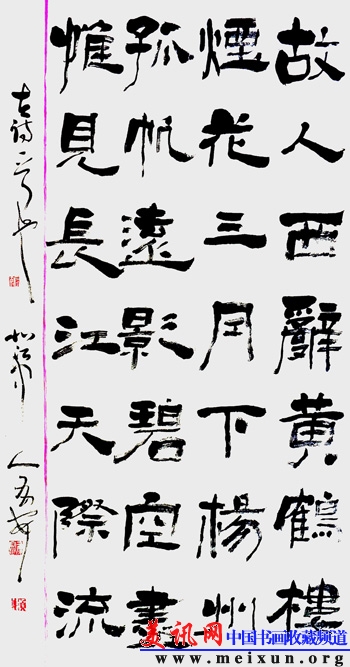 故人西辭黄鶴樓
煙花三月下楊州
孤帆遠影碧空盡
惟見長江天際流
古诗一首
美讯网 中国书画收藏频道
www.meixun.org